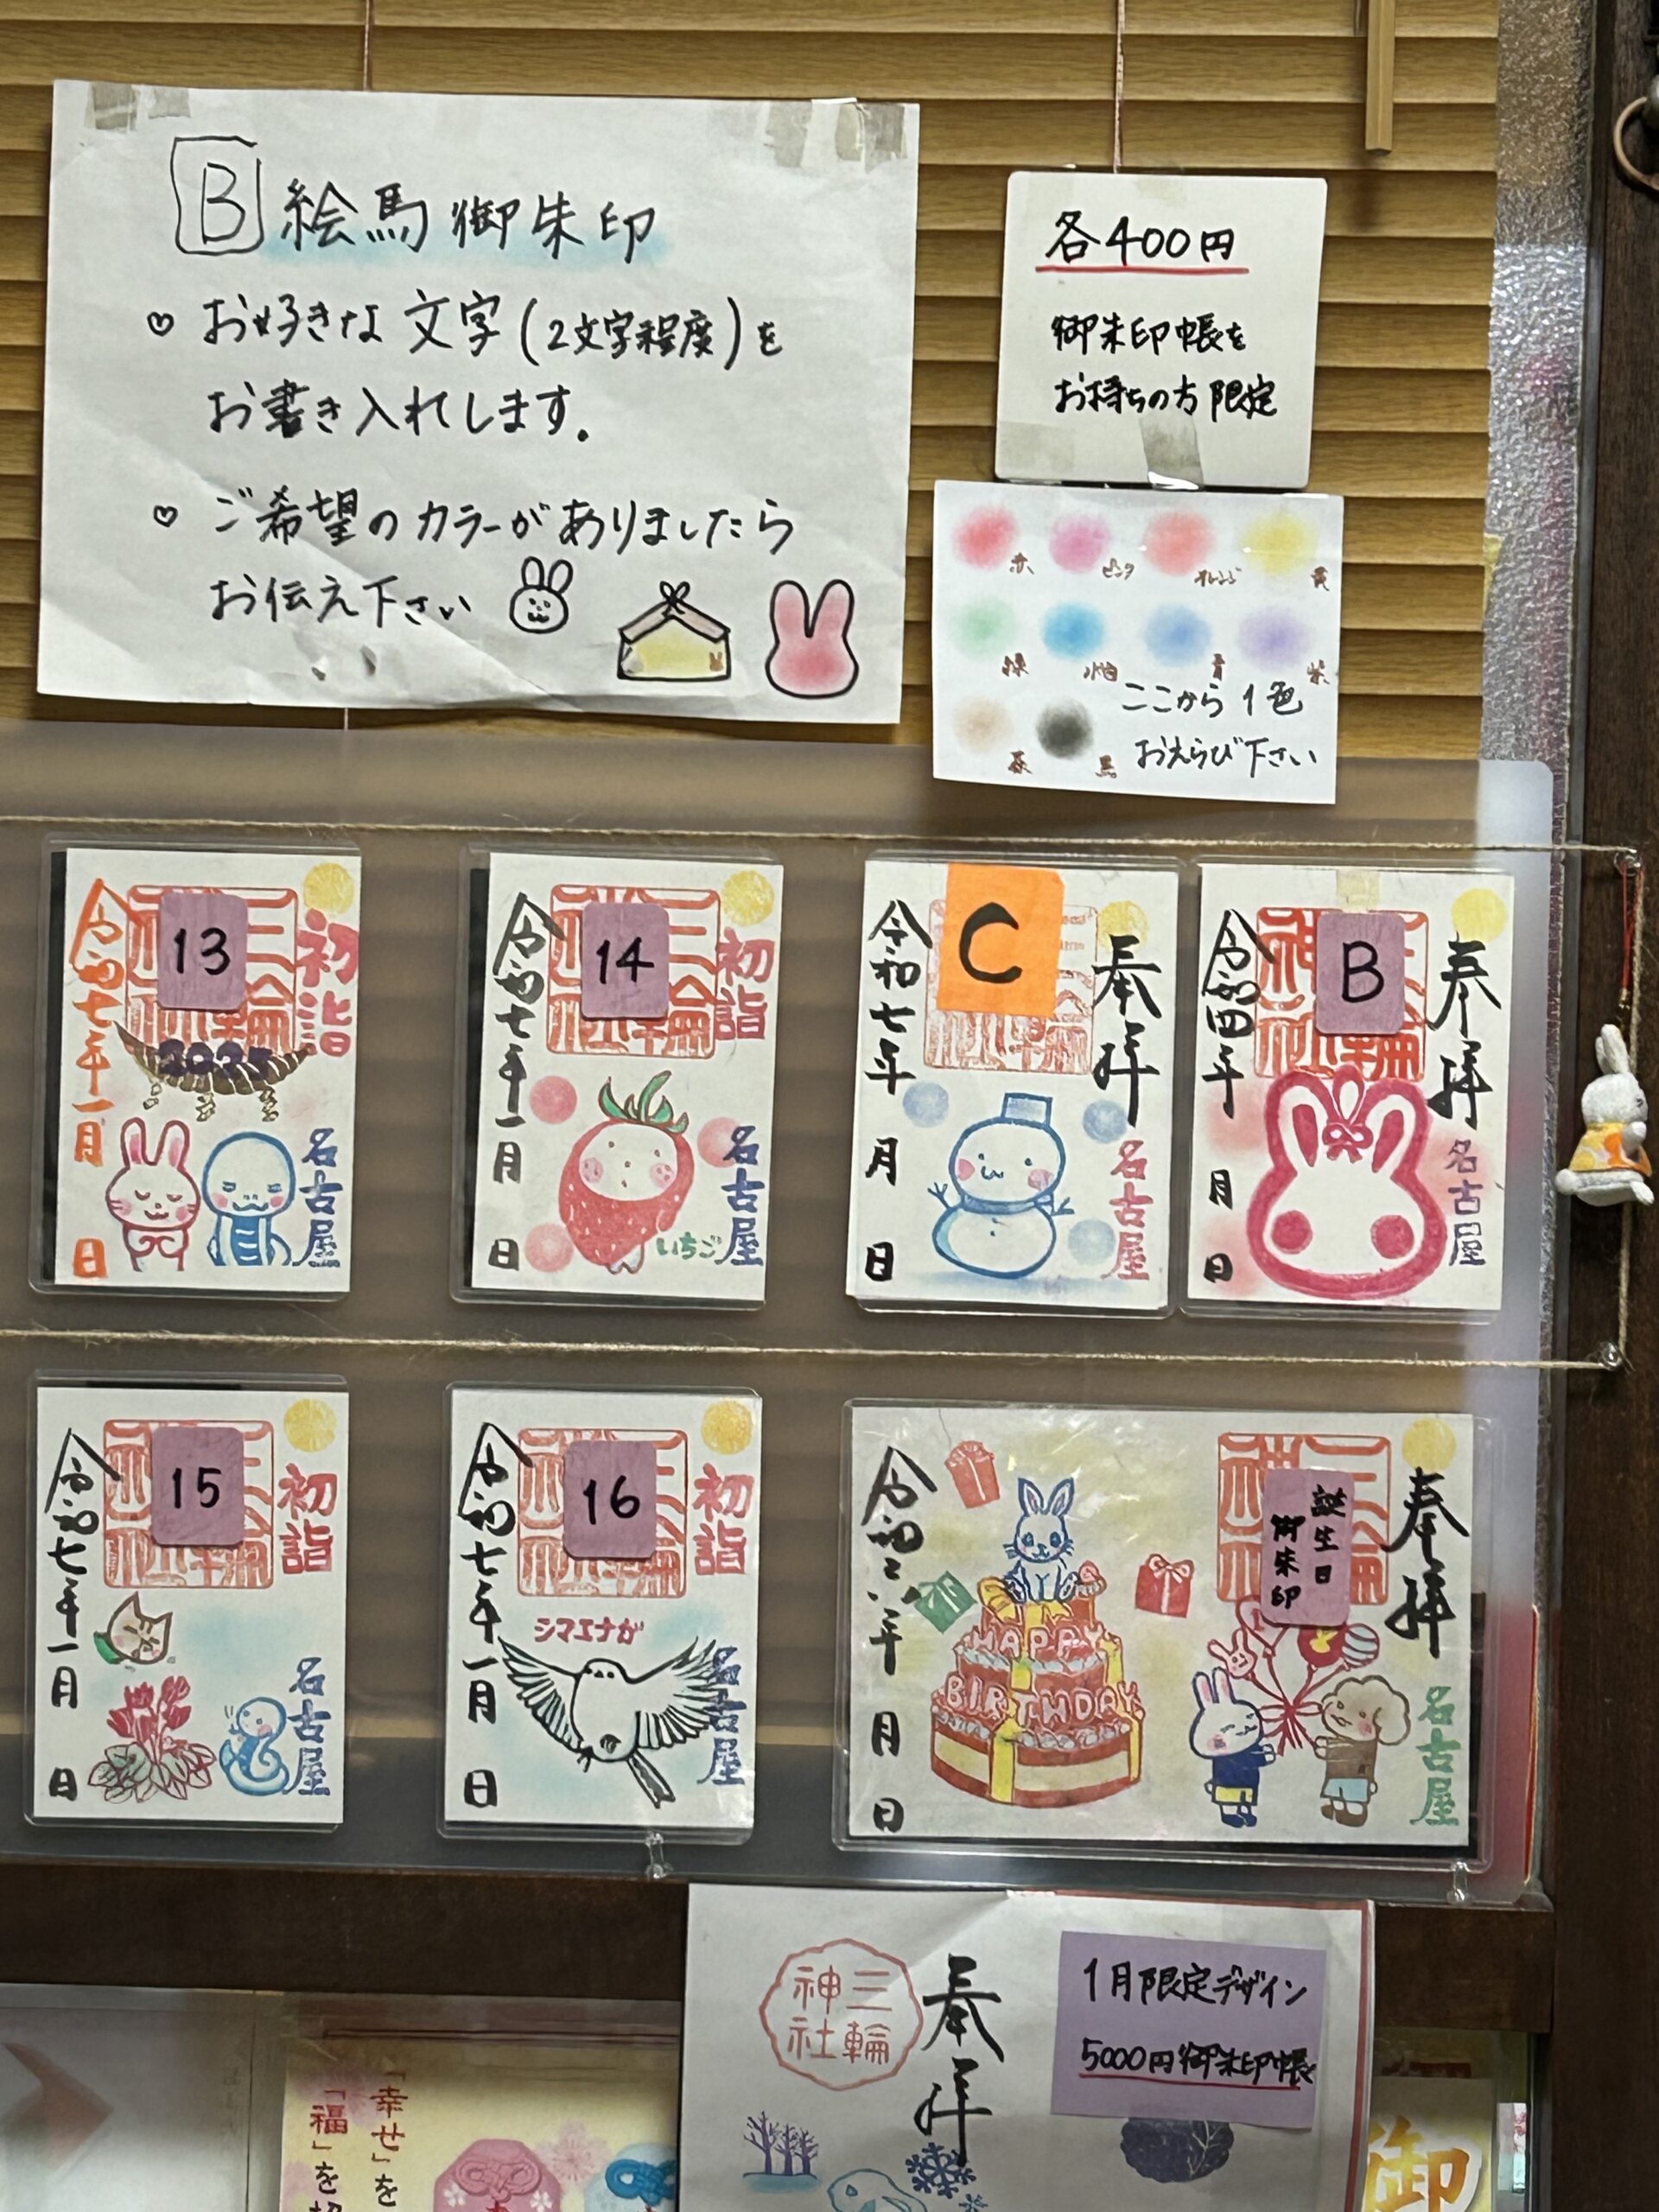 B 絵馬御朱印
♡ お好きな文字(2文字程度)を
お書き入れします.
♡ ご希望のカラーがありましたら
お伝え下さい
各400円
御朱印帳を
お持ちの方限定
赤 ピンク オレンジ 黄
緑 水色 青 紫
茶 黒
ここから1色
おえらび下さい
13
初詣
三輪
2025
令和七年一月 日
名古屋
14
初詣
三輪
令和七年一月 日
いちご
名古屋
C
奉拝
令和七年 月 日
名古屋
B
奉拝
令和四年 月 日
名古屋
15
初詣
三輪
令和七年一月 日
名古屋
16
初詣
三輪
シマエナガ
令和七年一月 日
名古屋
誕生日
御朱印
奉拝
HAPPY
BIRTHDAY
令和六年 月 日
名古屋
三輪
神社
奉拝
1月限定デザイン
5000円御朱印帳
「幸せ」を
「福」を
御